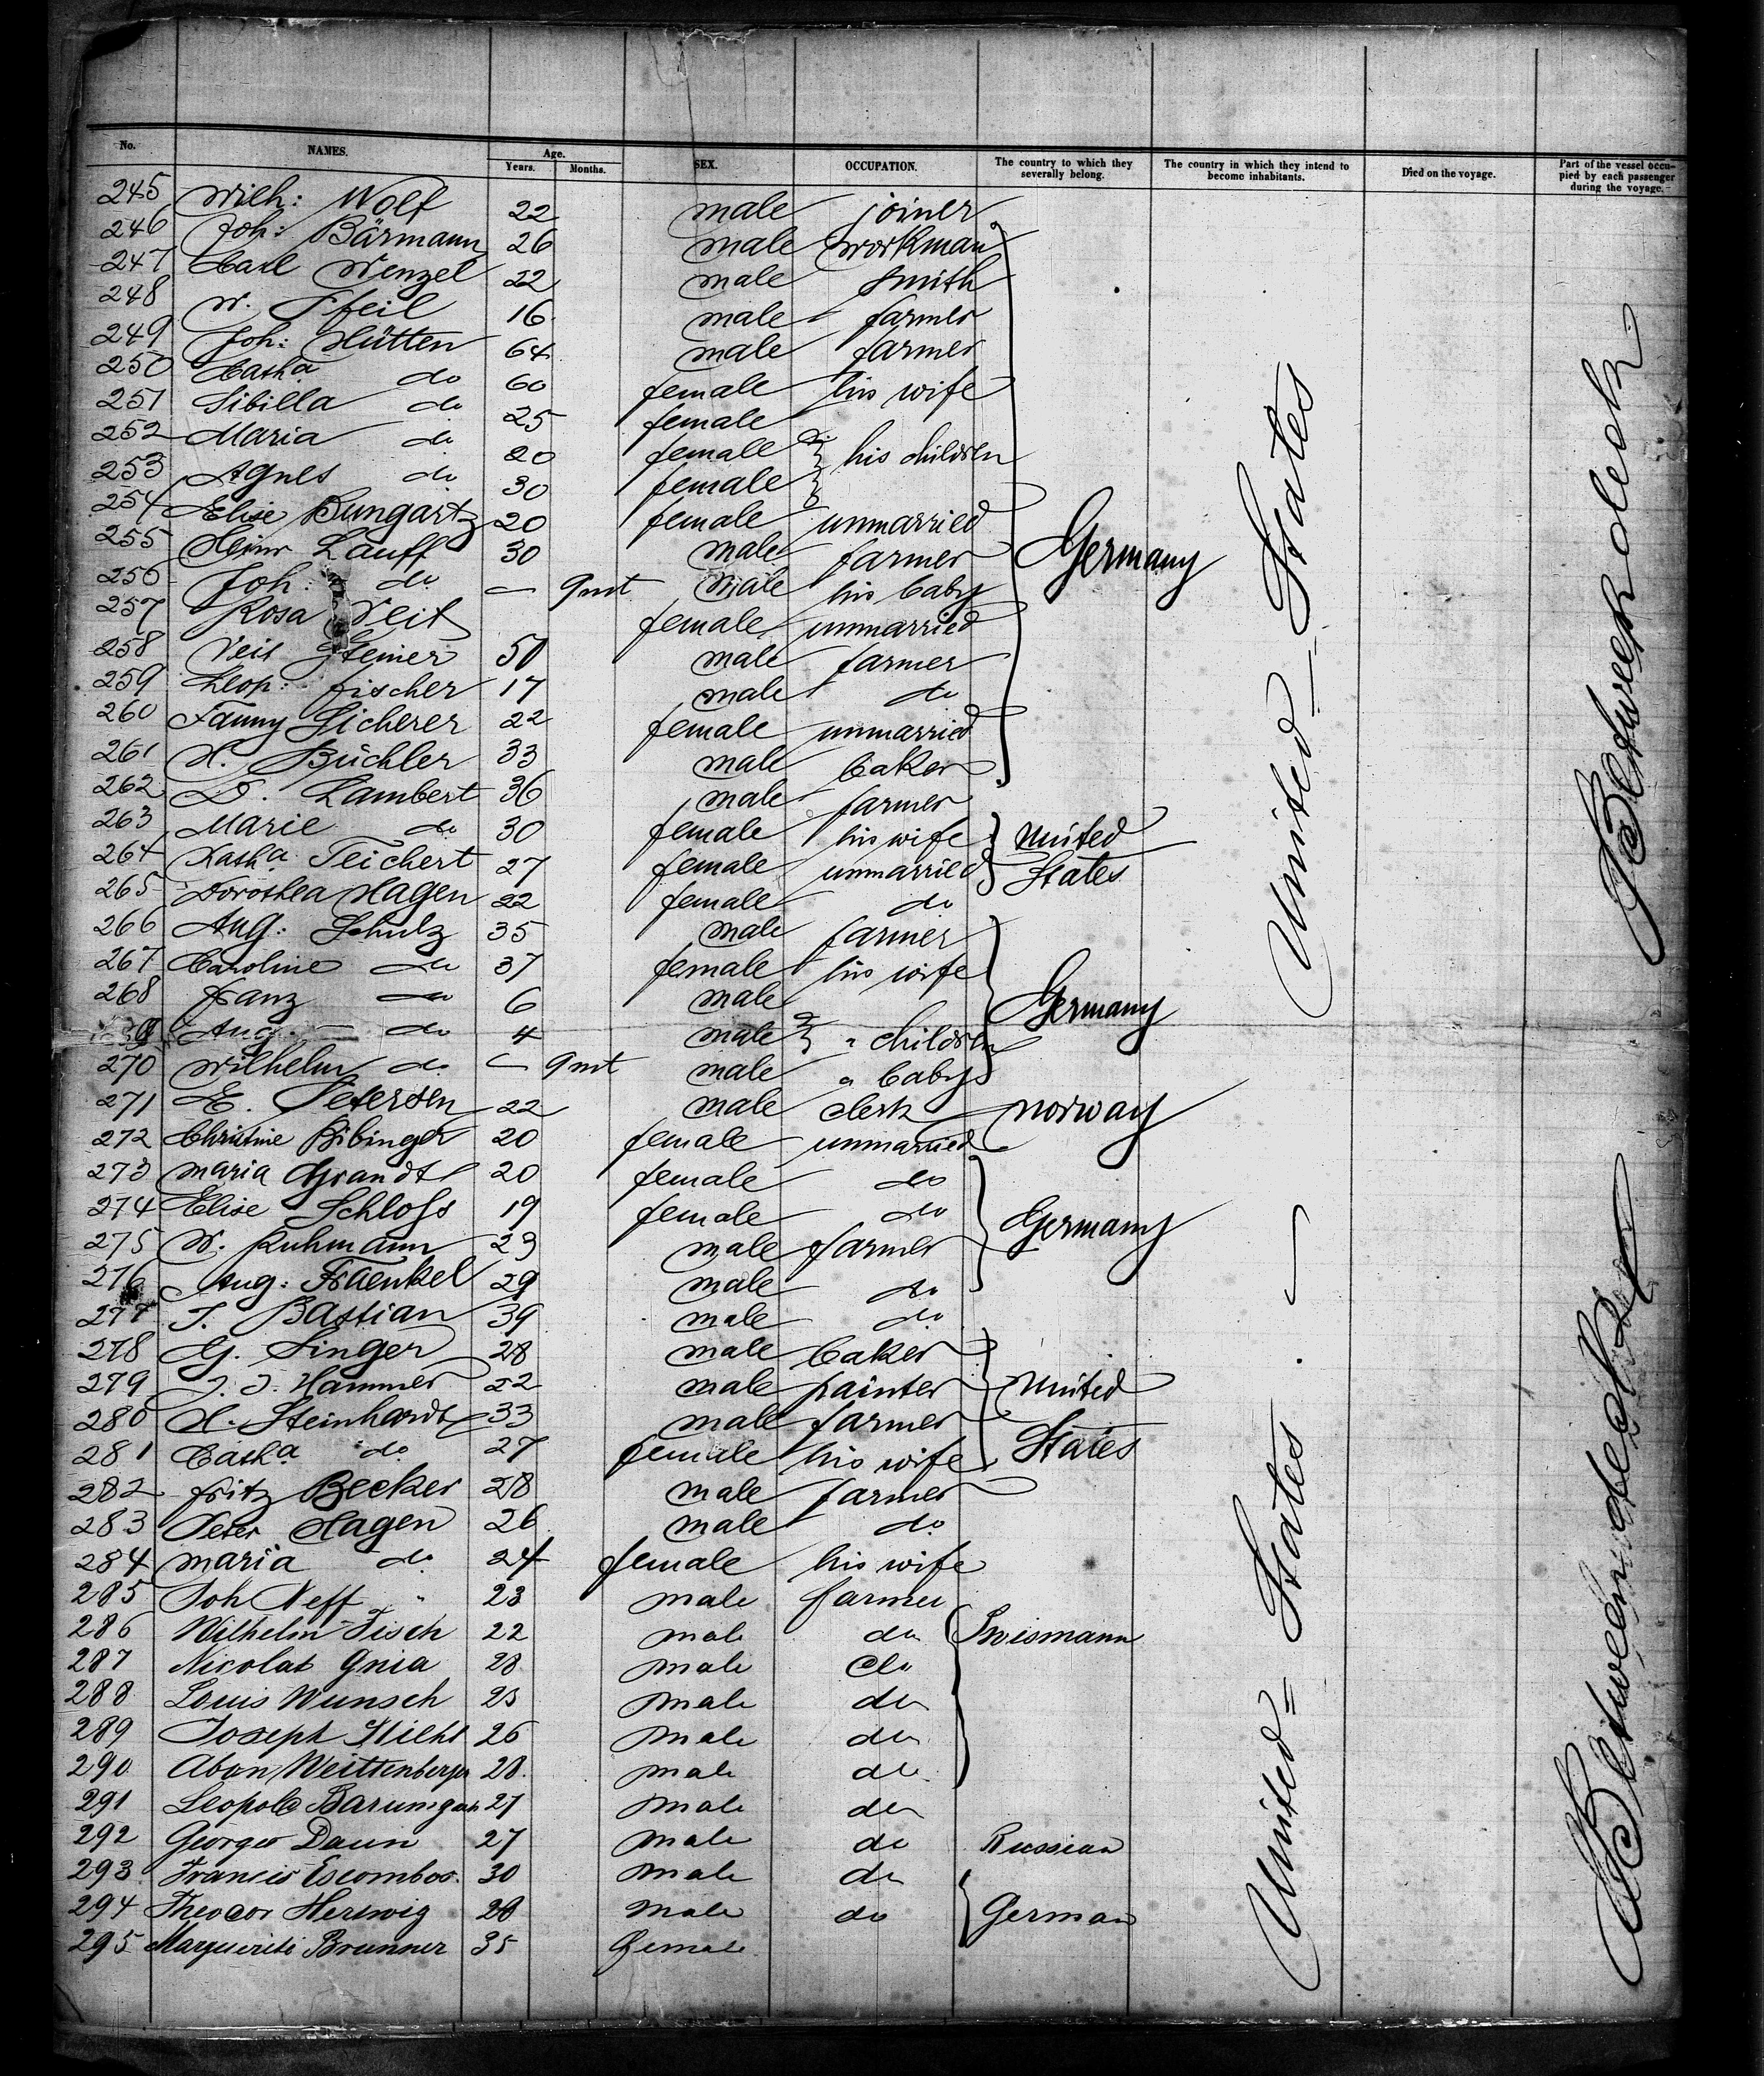 No. NAMES. Age. Years. Months. SEX. OCCUPATION. The country to which they severally belong. The country in which they intend to become inhabitants. Died on the voyage. Part of the vessel occupied by each passenger during the voyage.
245 Wilh: Wolf 22 male joiner
246 Joh: Bärmann 26 male workman
247 Carl Wenzel 22 male smith
248 W. Pfeil 16 male farmer
249 Joh: Hütten 64 male farmer
250 Catha do 60 female his wife
251 Sibilla do 25 female
252 Maria do 20 female his children
253 Agnes do 30 female
254 Elise Bungartz 20 female unmarried
255 Heinr Lauff 30 male farmer Germany
256 Joh: do — 9mt male his baby
257 Rosa Veit female unmarried
258 Veit Steiner 50 male farmer
259 Leop: Fischer 17 male do
260 Fanny Sicherer 22 female unmarried
261 H. Büchler 33 male baker
262 D. Lambert 36 male farmer
263 Marie do 30 female his wife United
264 Katha Teichert 27 female unmarried States
265 Dorothea Hagen 22 female do
266 Aug: Schulz 35 male farmer
267 Caroline do 37 female his wife
268 Franz do 6 male Germany
Aug. do 4 male " children
270 Wilhelm do — 9mt male " baby
271 E. Petersen 22 male clerk Norway
272 Christine Bibinger 20 female unmarried
273 Maria Grandt 20 female do
274 Elise Schloss 19 female do Germany
275 W. Kuhmann 23 male farmer
276 Aug: Fraenkel 29 male do
277 J. Bastian 39 male do
278 G. Singer 28 male baker
279 J. J. Hammer 22 male painter United
280 H. Steinhardt 33 male farmer States
281 Catha do 27 female his wife
282 Fritz Becker 28 male farmer
283 Peter Hagen 26 male do
284 Maria do 24 female his wife
285 Joh Neff " 23 male farmer
286 Wilhelm Fisch 22 male do Swismann
287 Nicolat Gnia 28 male do
288 Louis Wunsch 25 male do
289 Joseph 26 male do
290 Weittenberger 28 male do
291 Leopold 27 male do
292 George Daun 27 male do Russian
293 Francis Escombos 30 male do
294 Theodor Herwig 28 male do German
295 Marguerite Brunner 35 female
United States
United = States
Between deck
Between deck